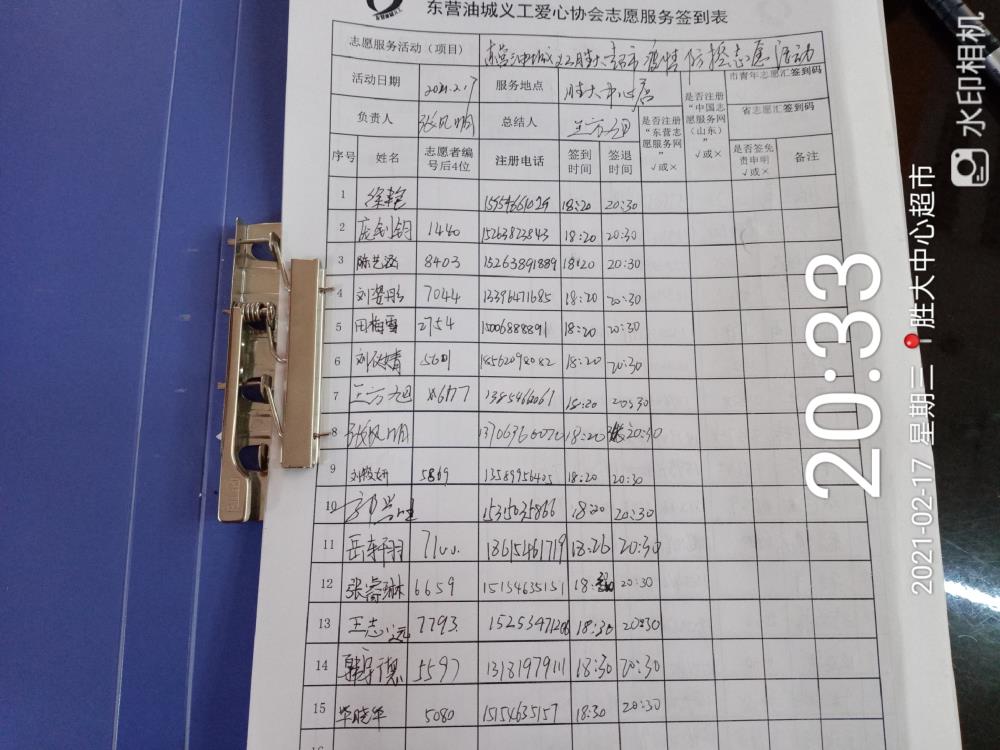 东营油城义工爱心协会志愿服务签到表
志愿服务活动（项目） 东营油城义工胜大超市疫情防控志愿活动
活动日期 2021.2.17 服务地点 胜大中心店 市青年志愿汇签到码
负责人 张风明 总结人 兰方旭 是否注册“东营志愿服务网” √或× 是否注册“中国志愿服务网（山东）” √或× 省志愿汇签到码
序号 姓名 志愿者编号后4位 注册电话 签到时间 签退时间 是否签免责申明 √或× 备注
1 徐艳 18:20 20:30
2 1440 15263822843 18:20 20:30
3 陈艺涵 8403 15263891889 18:20 20:30
4 7044 13396471685 18:20 20:30
5 田梅雪 2754 15006888891 18:20 20:30
6 18562098082 18:20 20:30
7 兰方旭 13854660061 18:20 20:30
8 张风明 18:20 20:30
9 5869 13589956405 18:20 20:30
10 15315035866 18:20 20:30
11 岳轩羽 18615461719 18:26 20:30
12 张睿琳 6659 15154635151 20:30
13 王志远 7793 18:30 20:30
14 5597 13181979111 18:30 20:30
15 毕晓华 5080 15154635157 18:30 20:30
水印相机
20:33
2021-02-17 星期三 胜大中心超市